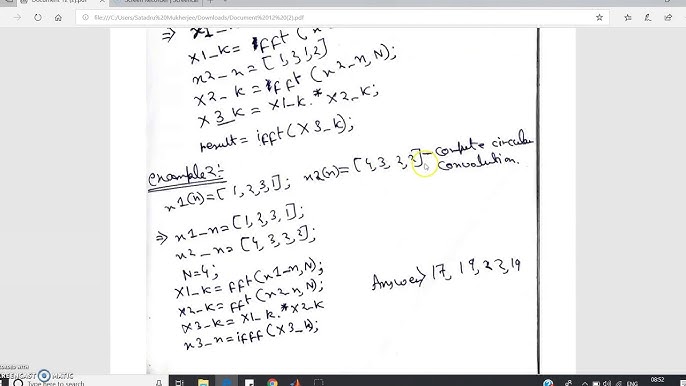 Document 12 (2).pdf
file:///C:/Users/Satadru%20Mukherjee/Downloads/Document%2012%20(2).pdf
x1_k= fft(
x2_n=[1,3,1,2]
x2_k= fft(x2_n,N);
x3_k= x1_k.*x2_k;
result= ifft(x3_k);
example2:-
x1(n)=[1,2,3,1]; x2(n)=[4,3,2,2] - compute circular
convolution.
⇒ x1_n=[1,2,3,1];
x2_n=[4,3,2,2];
N=4;
x1_k=fft(x1_n,N);
x2_k=fft(x2_n,N);
x3_k=x1_k.*x2_k
x3_n=ifft(x3_k);
Answer> 17, 19, 22, 19
SCREENCAST MATIC
Type here to search
ENG
08:52